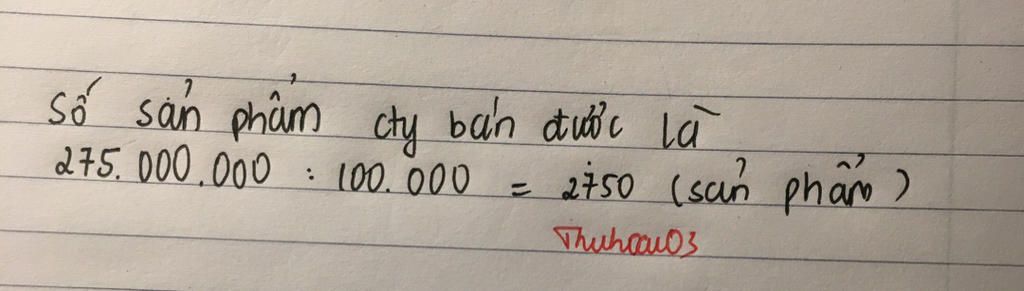 Số sản phẩm cty bán được là
275.000.000 : 100.000 = 2750 (sản phẩm)